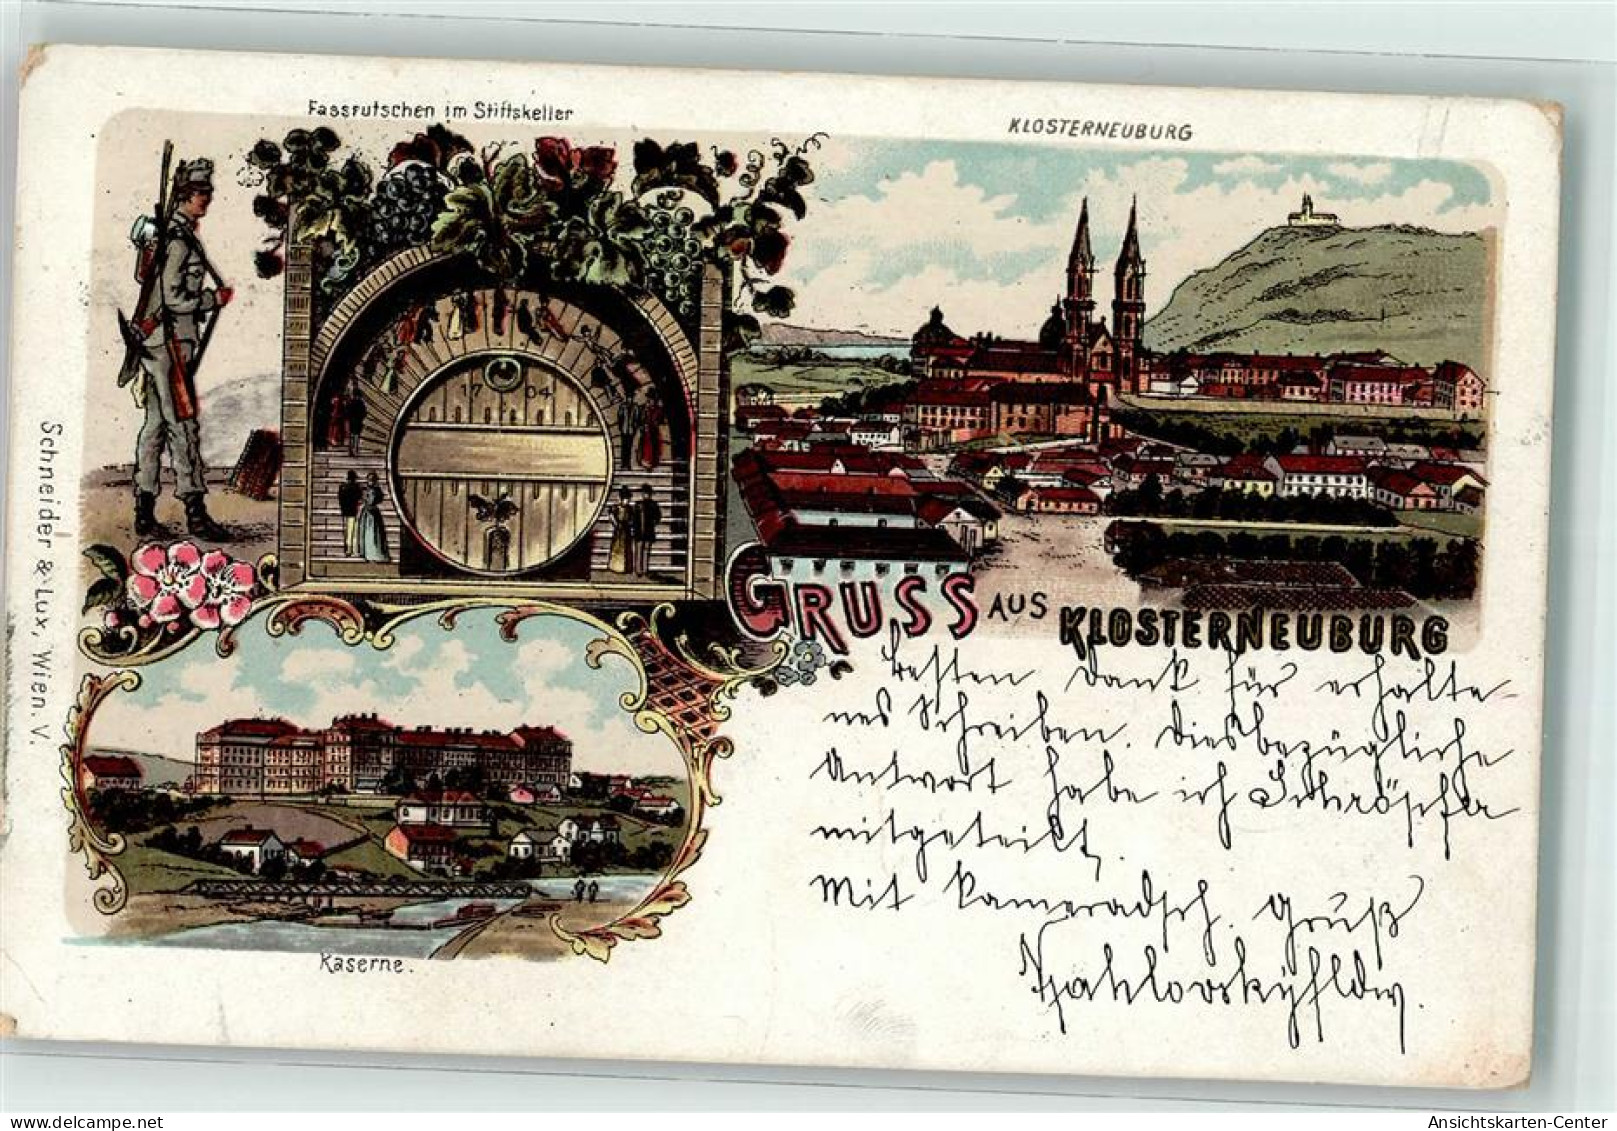 Fassrutschen im Stiftskeller
KLOSTERNEUBURG
17 04
Schneider & Lux, Wien. V.
GRUSS AUS KLOSTERNEUBURG
besten Dank für erhalte-
nes Schreiben. Diesbezügliche
Antwort habe ich
mitgeteilt,
Mit kameradsch. Gruß
Kaserne.
Ansichtskarten-Center